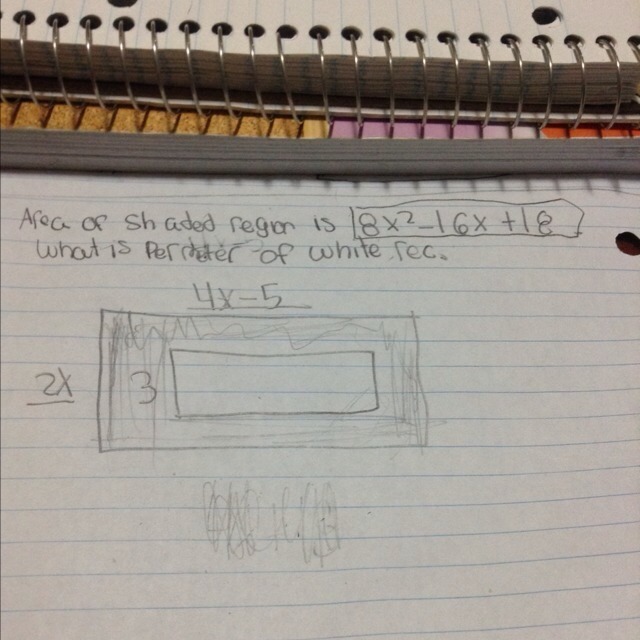 Area of shaded region is 8x²-16x+18
What is Permiter of white rec.
4x-5
2x
3